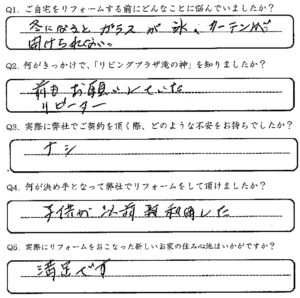 Q1. ご自宅をリフォームする前にどんなことに悩んでいましたか？
冬になると ガラスが 氷、カーテンが
開けられない。
Q2. 何がきっかけで、「リビングプラザ滝の神」を知りましたか？
前もお願いしていた
リピーター
Q3. 実際に弊社でご契約を頂く際、どのような不安をお持ちでしたか？
ナシ
Q4. 何が決め手となって弊社でリフォームをして頂けましたか？
子供が以前利用した
Q5. 実際にリフォームをおこなった新しいお家の住み心地はいかがですか？
満足です